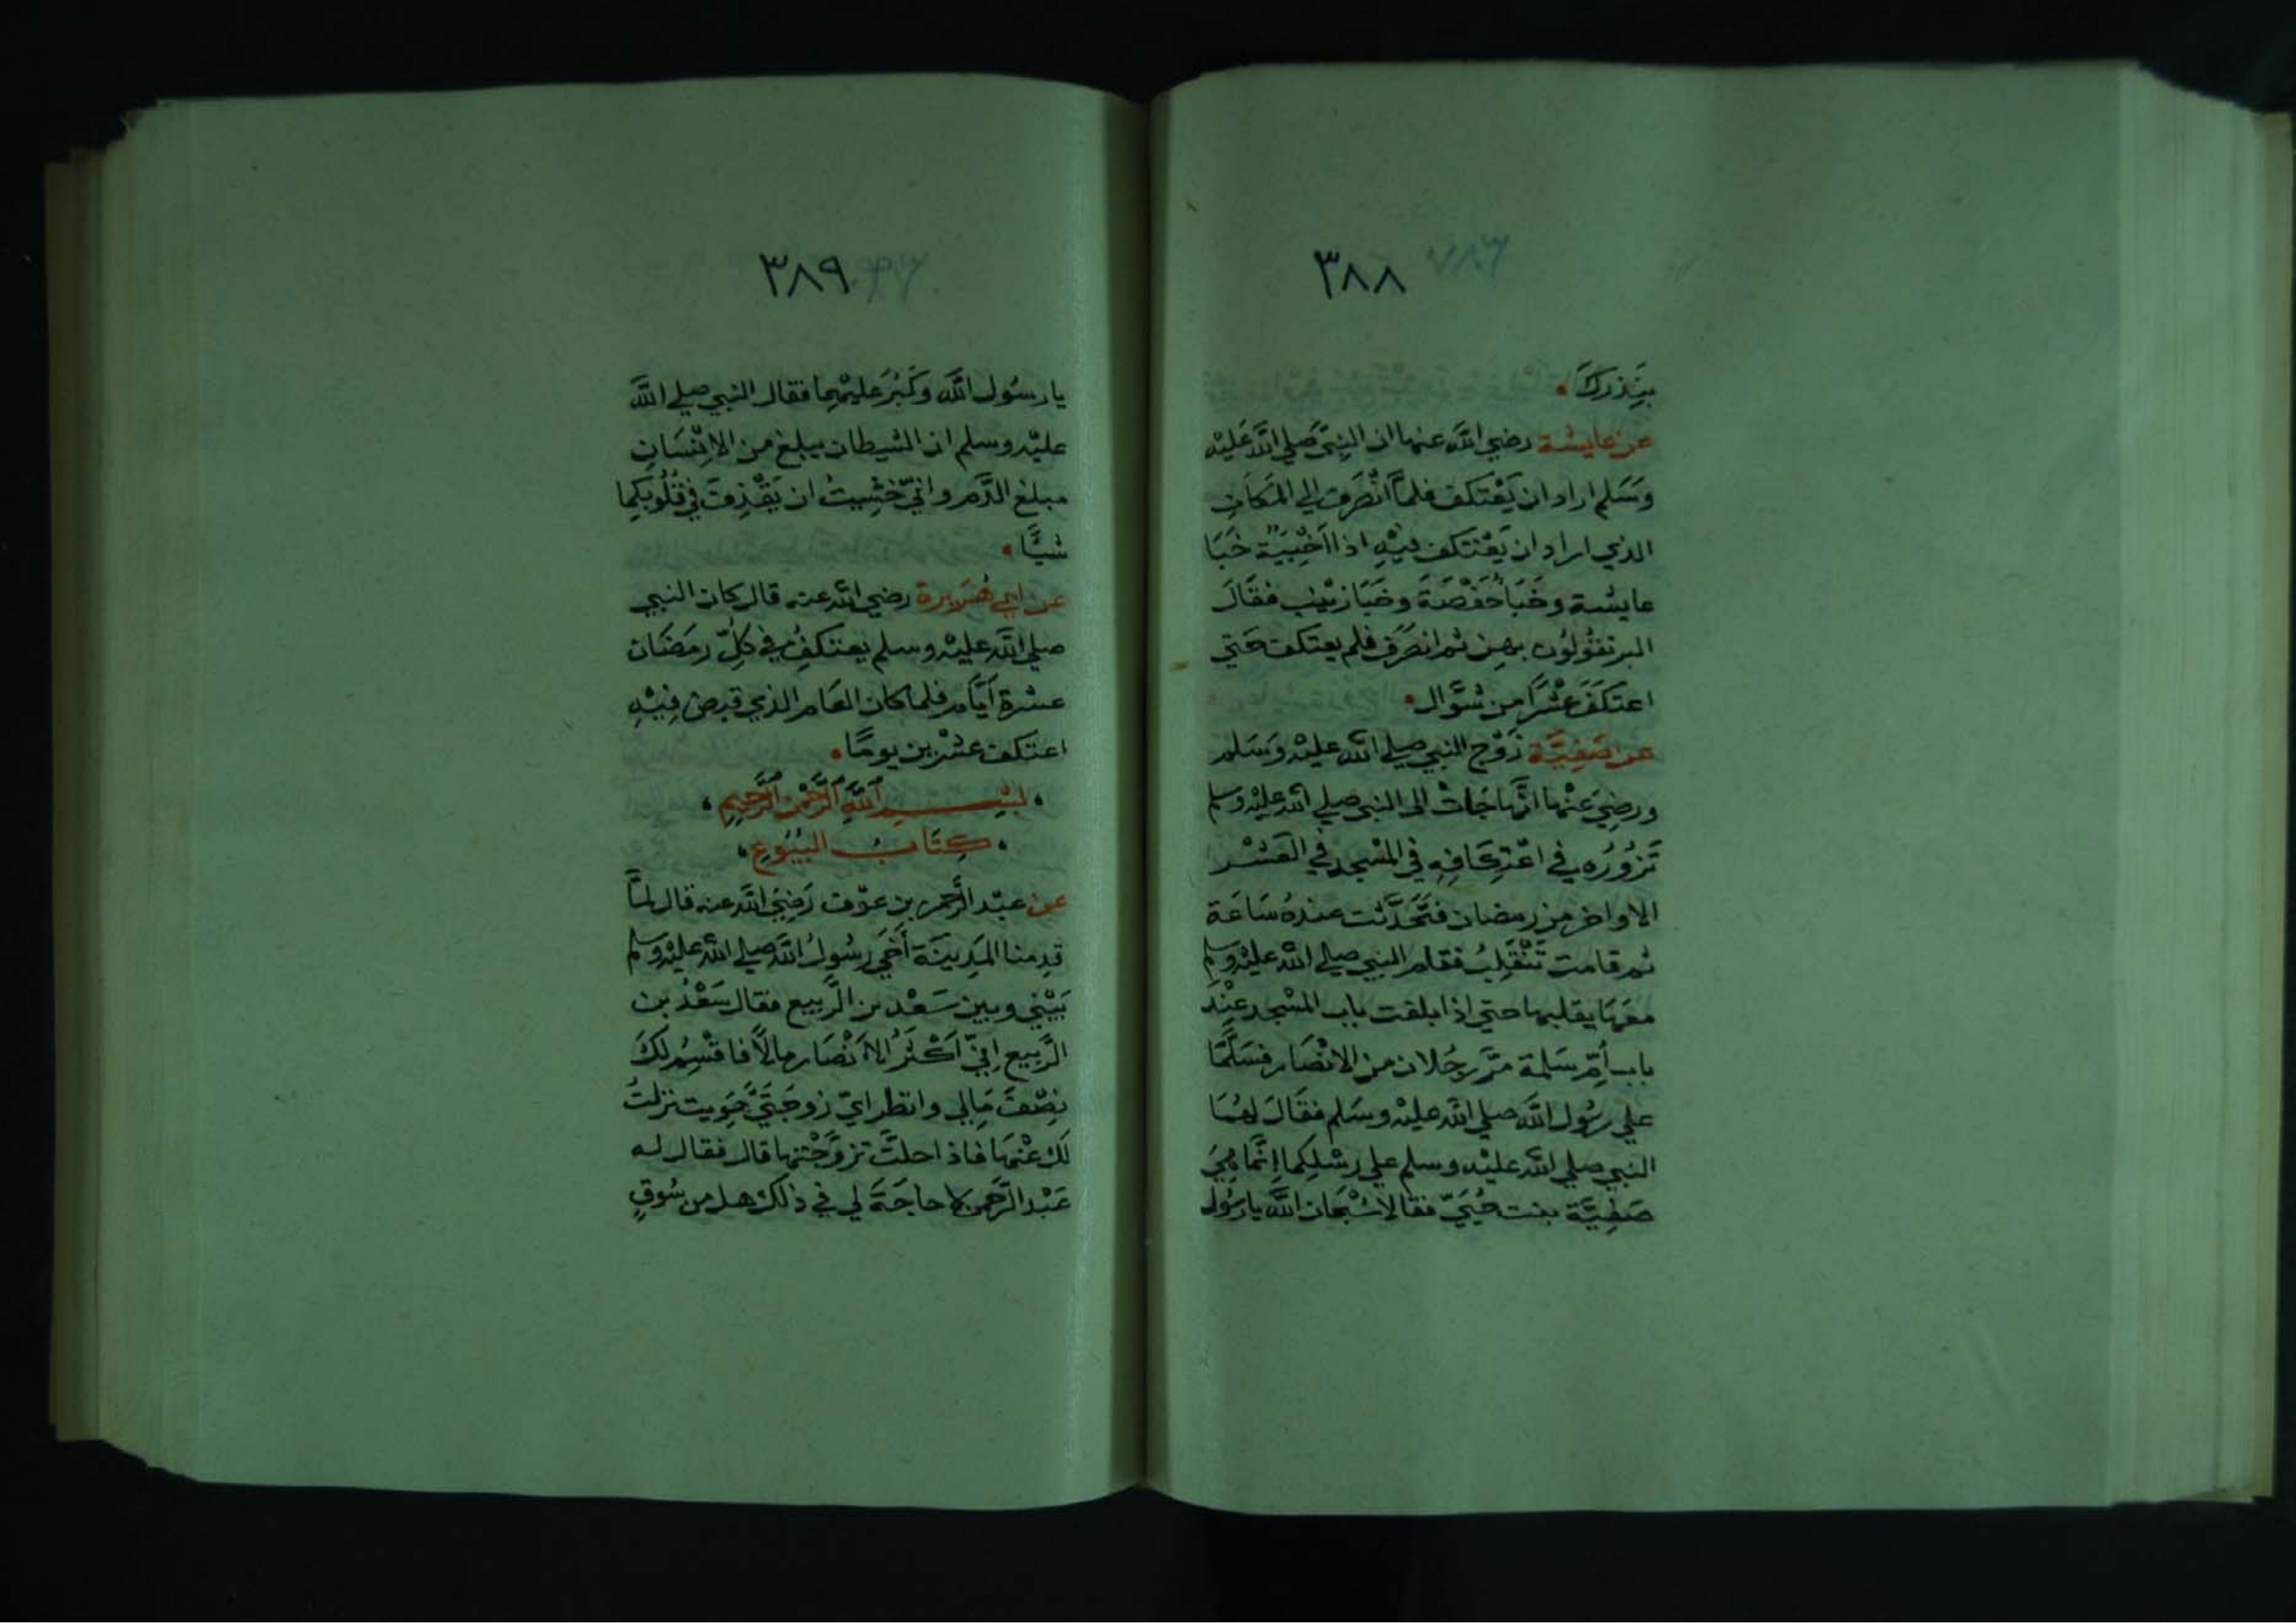 ٣٨٨
بِنَذرِكَ •
عن عايشة رضي الله عنها ان النبيّ صَلي الله عَليْه
وَسَلم اراد ان يَعْتكف فلمَّا انْصَرف الي المَكانِ
الذي اراد ان يَعْتكف فيْهِ اذا اَخْبِيَةٌ خَبَا
عايشة وخَبَا حَفْصَةَ وخَبَا زيْنب فقَالَ
البر تقُولُون بهن ثم انصَرَف فلم يعتكف حَتي
اعتكفَ عشْرًا من شوَّال •
عن صَفِيَّة زَوْج النبي صلي الله عليْه وَسَلم
ورضِيَ عنْها انَّها جَاتْ الى النبي صلي الله عليْه وسلم
تَزُورُه في اعْتِكَافِهِ في المسْجد في العَشْر
الاواخر من رمضان فتَحَدَّثت عندهُ سَاعَة
ثم قامت تَنْقَلِبُ فقام النبي صلي الله عليْه وسلم
معَهَا يقلبها حتي اذا بلقت باب المسْجد عنْدَ
باب اُمّ سَلمة مَرَّ رجُلان من الانْصَار فسَلَّمَا
علي رسُول الله صلي الله عليْه وسَلم فقَالَ لهُمَا
النبي صلي الله عليْه وسلم علي رِسْلِكما اِنَّمَا هِيَ
صَفِيَّة بنت حُيَيّ فقالا سُبْحَان الله يا رسُول
٣٨٩
يا رسُول الله وَكَبُرَ عليْهِما فقال النبي صلي الله
عليْه وسلم ان الشيطان يبلغ من الاِنْسَانِ
مبلغ الدَّم واني خَشِيتُ ان يَقْذِفَ في قُلُوبكما
شيًّا •
عن ابي هُرَيرة رضي الله عنه قال كان النبي
صلي الله عليْه وسلم يعتكفُ في كلّ رمَضَان
عشرة اَيَّام فلما كان العَام الذي قبض فيْهِ
اعتكف عشْرين يومًا •
بسْم اللهِ الرَّحْمنِ الرَّحِيمِ
كِتَابُ البُيُوعِ
عن عبْد الرَّحمن بن عوْف رَضِيَ الله عنه قال لمَّا
قدِمنا المَدِينَة اَخَي رسُولُ الله صلي الله عليْه وسلم
بَيْني وبين سَعْد بن الرَّبيع فقال سَعْدُ بن
الرَّبيع اِنيّ اَكْثَرُ الاَنْصَار مالاً فاقْسِمُ لكَ
نِصْفَ مَالِي وانظر ايّ زوجَتَيَّ هَوِيت نزلتُ
لكَ عنْهَا فاذا حلتَّ تزوَّجْتها قال فقال له
عَبْد الرَّحمن لا حاجَةَ لي في ذلكَ هل من سُوقٍ